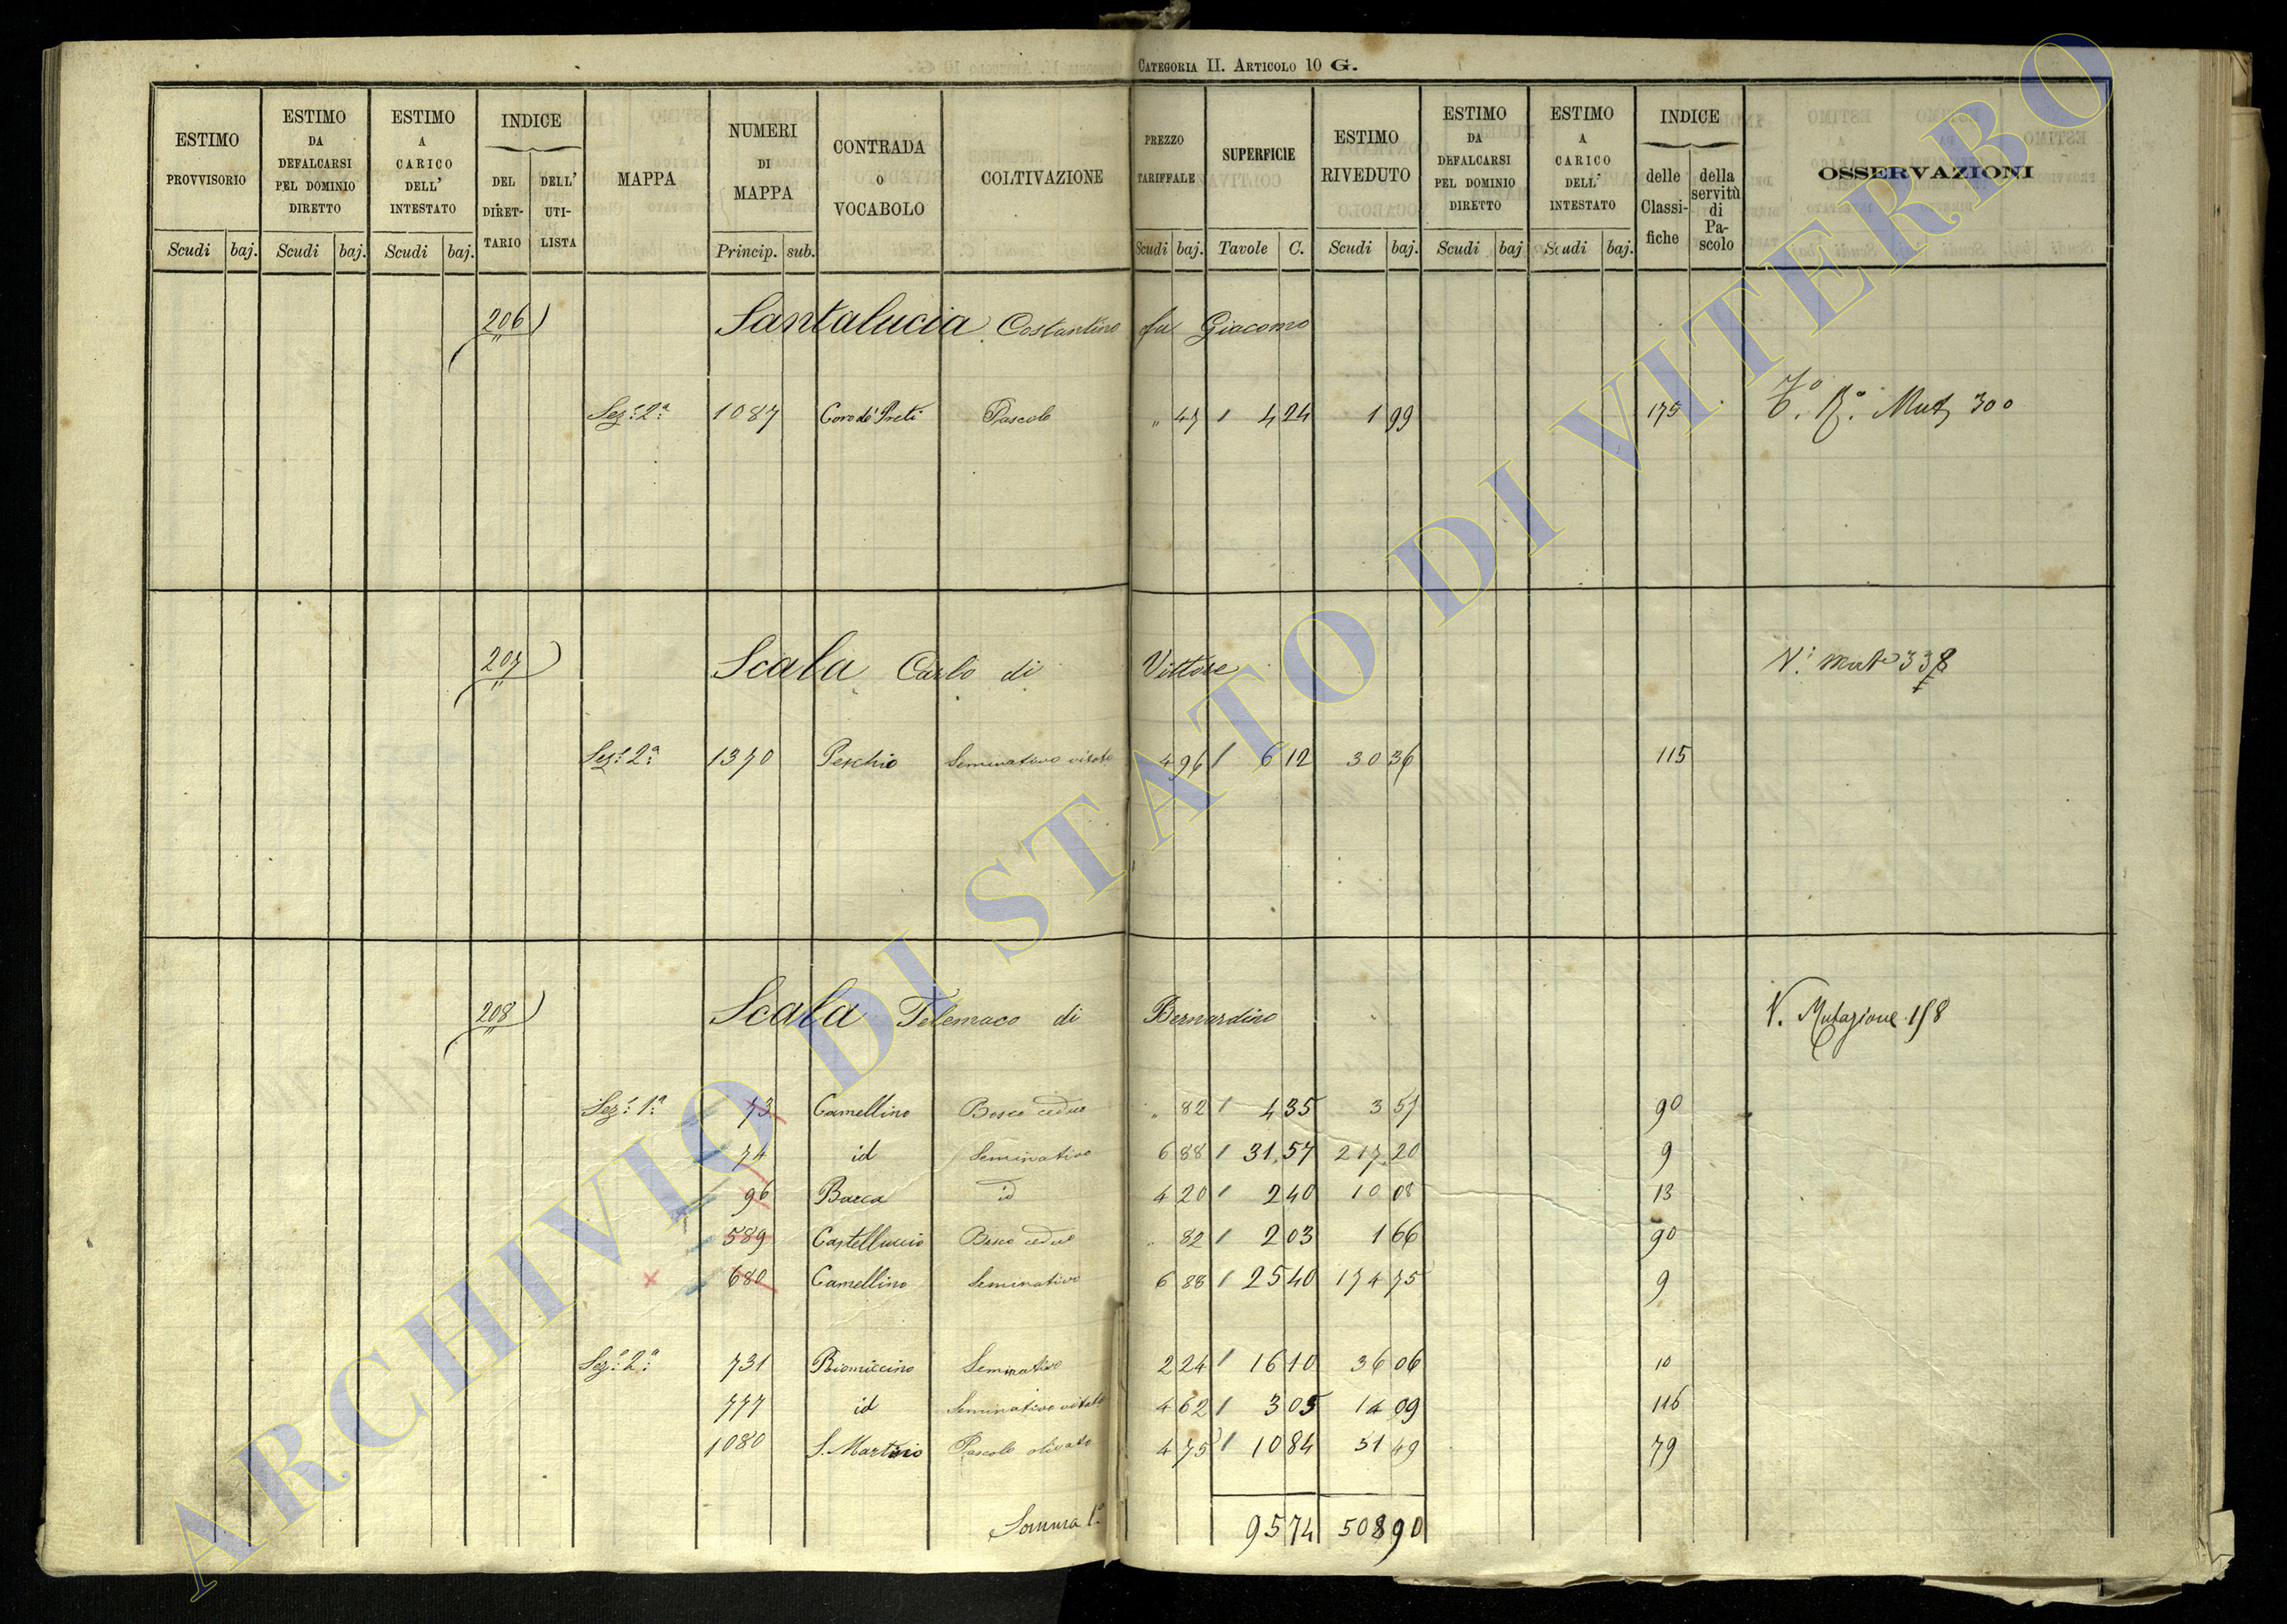 CATEGORIA II. ARTICOLO 10 G.
ESTIMO PROVVISORIO Scudi baj.
ESTIMO DA DEFALCARSI PEL DOMINIO DIRETTO Scudi baj.
ESTIMO A CARICO DELL' INTESTATO Scudi baj.
INDICE DEL DIRET-TARIO DELL' UTI-LISTA
MAPPA
NUMERI DI MAPPA Princip. sub.
CONTRADA O VOCABOLO
COLTIVAZIONE
PREZZO TARIFFALE Scudi baj.
SUPERFICIE Tavole C.
ESTIMO RIVEDUTO Scudi baj.
ESTIMO DA DEFALCARSI PEL DOMINIO DIRETTO Scudi baj
ESTIMO A CARICO DELL' INTESTATO Scudi baj.
INDICE delle Classi-fiche della servitù di Pa-scolo
OSSERVAZIONI
206 Santalucia Costantino fu Giacomo
Sez: 2ª 1087 Coro de' Preti Pascolo " 47 4 24 1 99 175 Mut 300
207 Scala Carlo di Vittore
Sez: 2ª 1370 Peschio Seminativo vitato 4 96 6 12 30 36 115
208 Scala Telemaco di Bernardino V. Mutazione 158
Sez: 1ª 73 Camellino Bosco ceduo " 82 4 35 3 57 90
74 id Seminativo 6 88 31 57 217 20 9
96 Barca id 4 20 2 40 10 08 13
589 Castelluccio Bosco ceduo " 82 2 03 1 66 90
680 Camellino Seminativo 6 88 25 40 174 75 9
Sez: 2ª 731 Riomiccino Seminativo 2 24 16 10 36 06 10
777 id Seminativo vitato 4 62 3 05 14 09 116
1080 S. Martino Pascolo olivato 4 75 10 84 51 49 79
Somma 1ª 95 74 508 90
ARCHIVIO DI STATO DI VITERBO